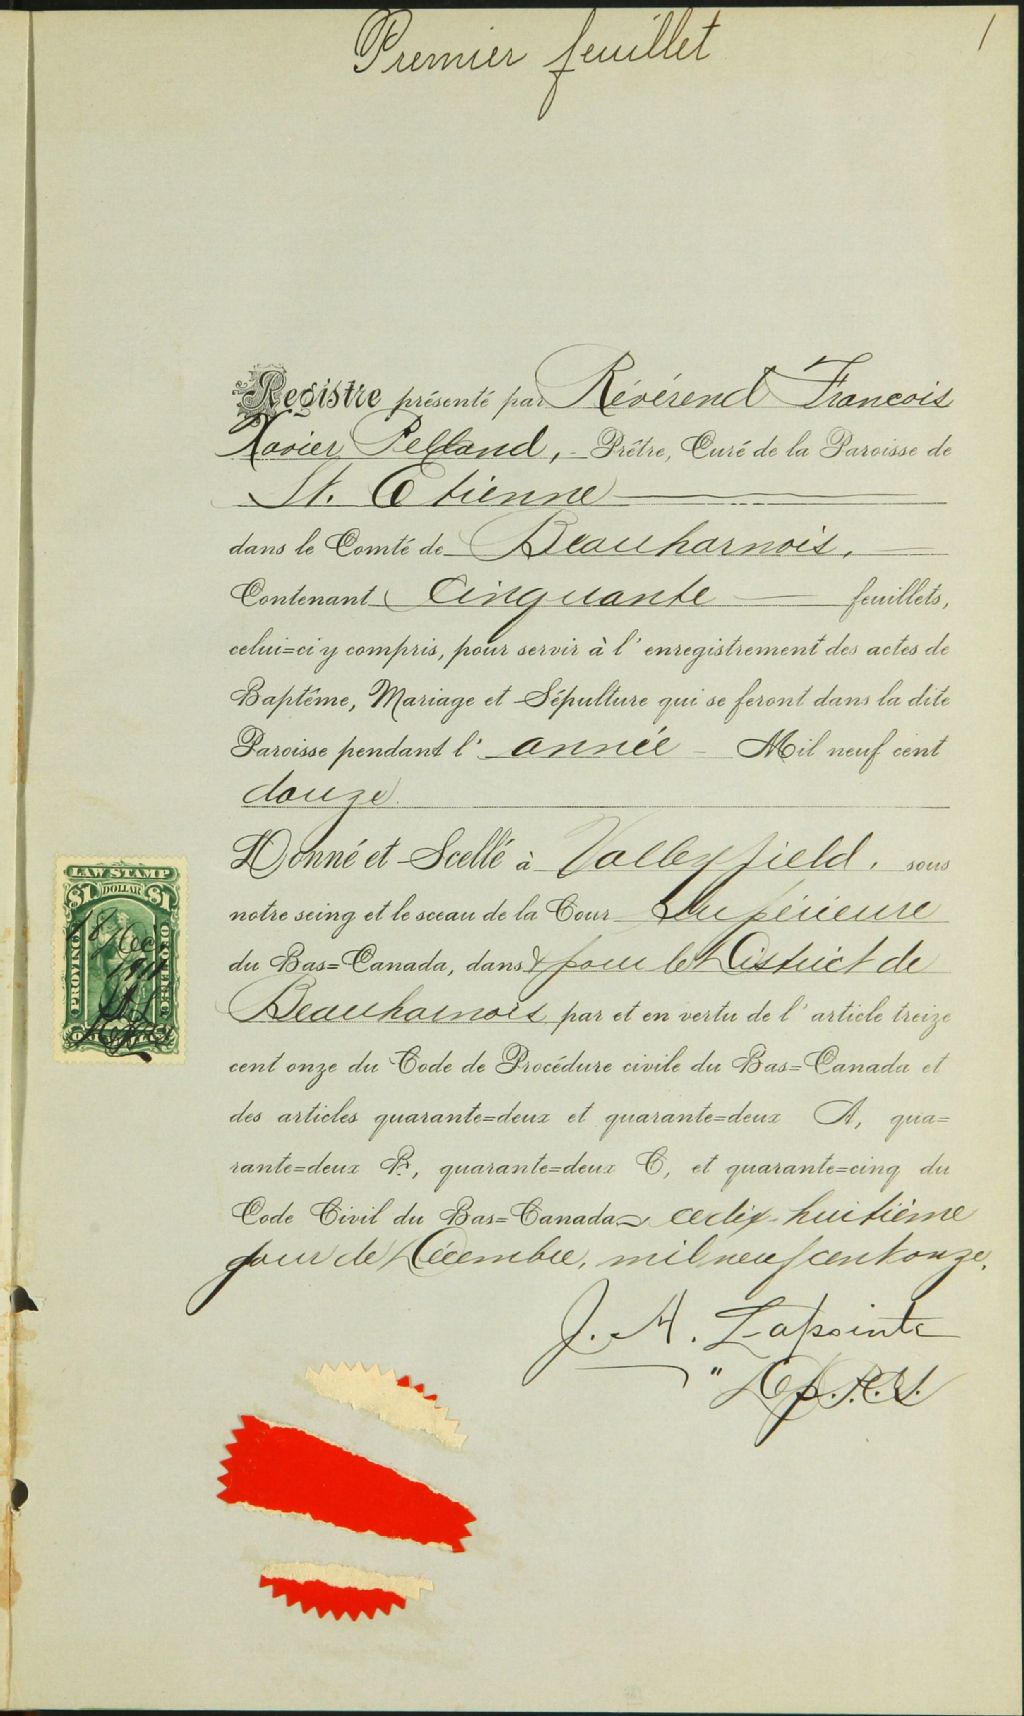 Premier feuillet
1
Registre présenté par Révérend Francois
Xavier Pelland, - Prêtre, Curé de la Paroisse de
St. Etienne
dans le Comté de Beauharnois.
Contenant Cinquante feuillets,
celui=ci y compris, pour servir à l'enregistrement des actes de
Baptême, Mariage et Sépulture qui se feront dans la dite
Paroisse pendant l'année - Mil neuf cent
douze.
Donné et Scellé à Valleyfield. sous
notre seing et le sceau de la Cour Supérieure
du Bas=Canada, dans & pour le District de
Beauharnois par et en vertu de l'article treize
cent onze du Code de Procédure civile du Bas=Canada et
des articles quarante=deux et quarante=deux A, qua=
rante=deux B, quarante=deux C, et quarante=cinq du
Code Civil du Bas=Canada ce dix-huitième
jour de Décembre, mil neuf cent onze.
J. A. Lapointe
Dp. P.C.S.
LAW STAMP
$1 DOLLAR $1
PROVINCE OF QUEBEC
18 Dec
1911